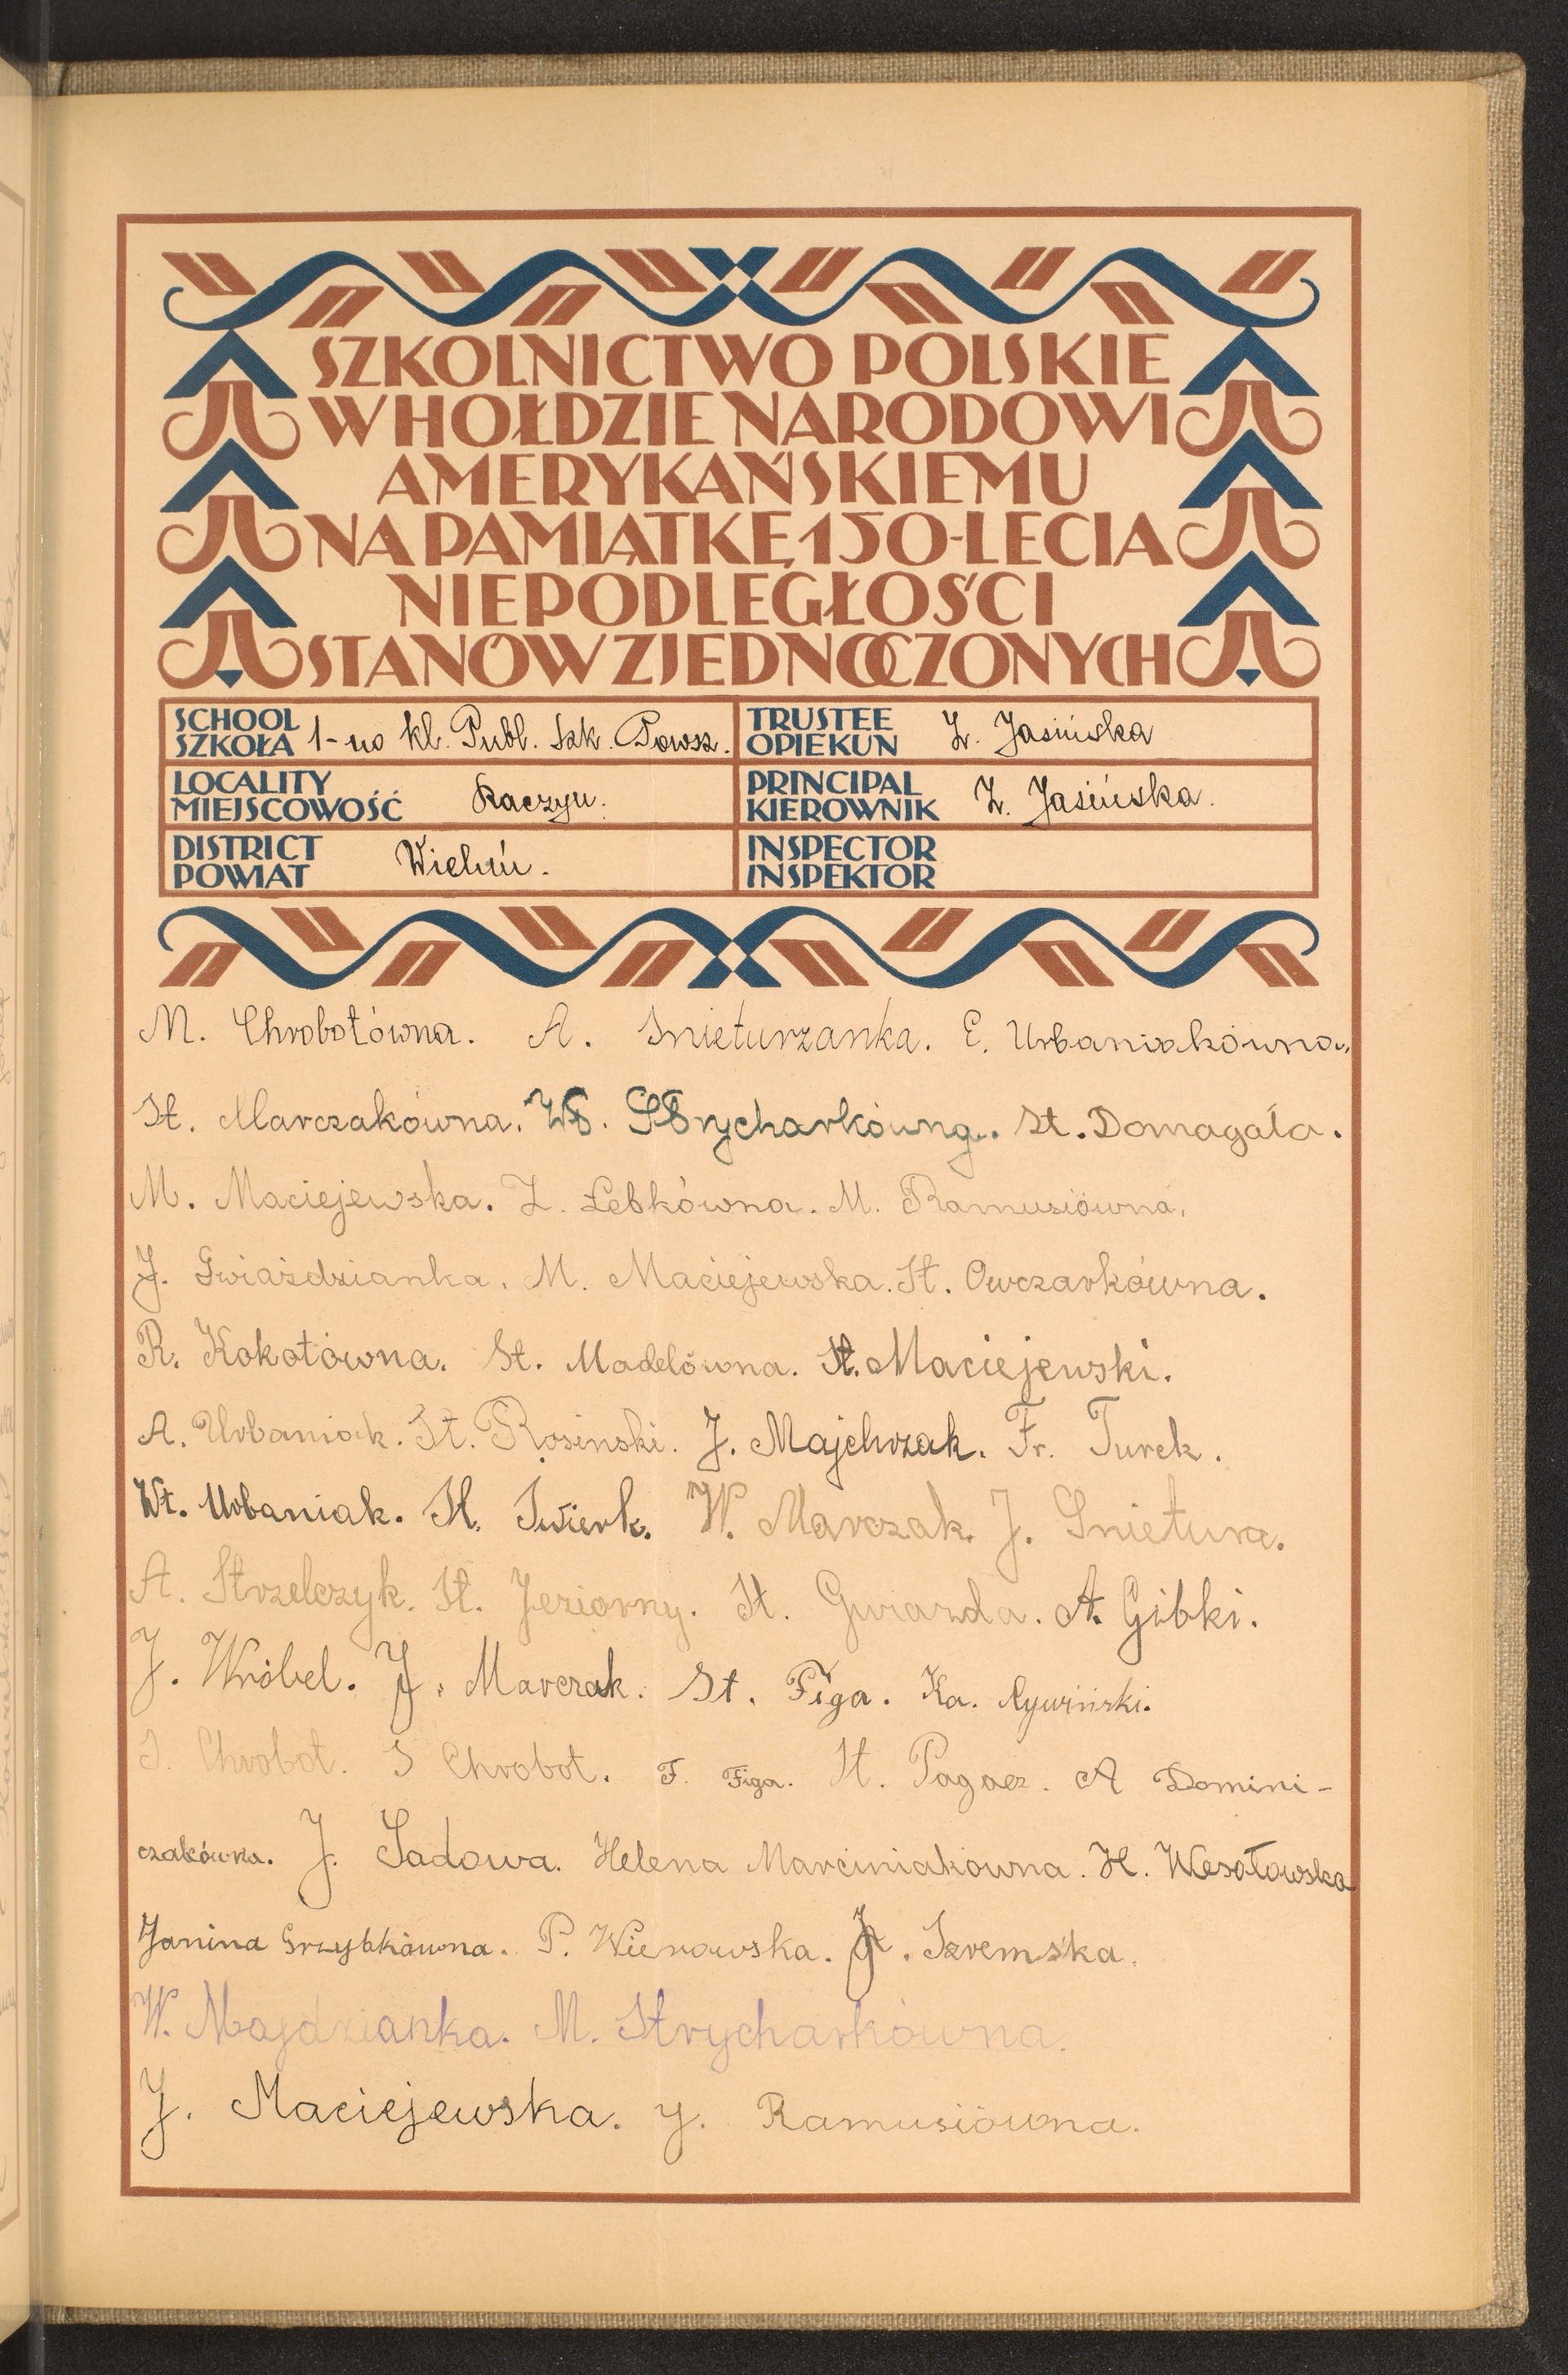 SZKOLNICTWO POLSKIE
W HOŁDZIE NARODOWI
AMERYKAŃSKIEMU
NA PAMIĄTKĘ 150-LECIA
NIEPODLEGŁOŚCI
STANÓW ZJEDNOCZONYCH
SCHOOL
SZKOŁA 1-no kl. Publ. Szk. Powsz.
TRUSTEE
OPIEKUN Z. Jasińska
LOCALITY
MIEJSCOWOŚĆ Raczyn.
PRINCIPAL
KIEROWNIK Z. Jasińska.
DISTRICT
POWIAT Wieluń.
INSPECTOR
INSPEKTOR
M. Chrobotówna. A. Snieturzanka. E. Urbaniakówna.
St. Marczakówna. Wł. Strycharkówna. St. Domagała.
M. Maciejewska. Z. Łebkówna. M. Ramusiówna.
J. Gwiaździanka. M. Maciejewska. St. Owczarkówna.
R. Kokotówna. St. Madelówna. St. Maciejewski.
A. Urbaniak. St. Rosinski. J. Majchrzak. Fr. Turek.
Wł. Urbaniak. St. Świerk. W. Marczak. J. Snietura.
A. Strzelczyk. St. Jeziorny. St. Gwiazda. A. Gibki.
J. Wróbel. J. Marczak. St. Figa. Ka. Rywiński.
J. Chrobot. S Chrobot. F. Figa. St. Pagacz. A Domini-
czakówna. J. Sadowa. Helena Marciniakowna. H. Wesołowska
Janina Grzybkówna. P. Wierowska. J. Szremska.
W. Majdzianka. M. Strycharkówna.
J. Maciejewska. J. Ramusiówna.